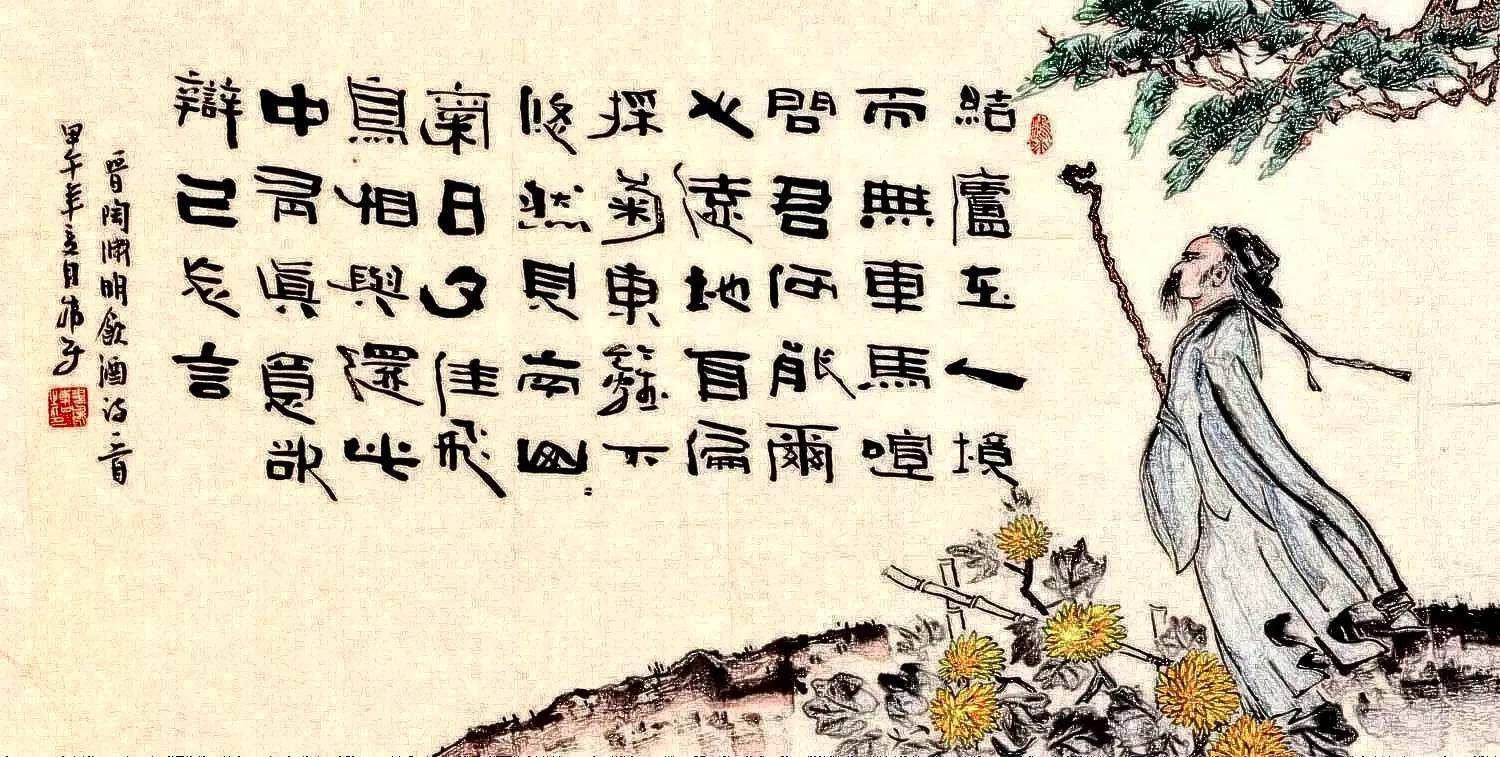 結廬在人境
而無車馬喧
問君何能爾
心遠地自偏
採菊東籬下
悠然見南山〻
氣日夕佳飛
鳥相與還此
中有眞意欲
辯已忘言
晉陶淵明飲酒詩一首
甲午年